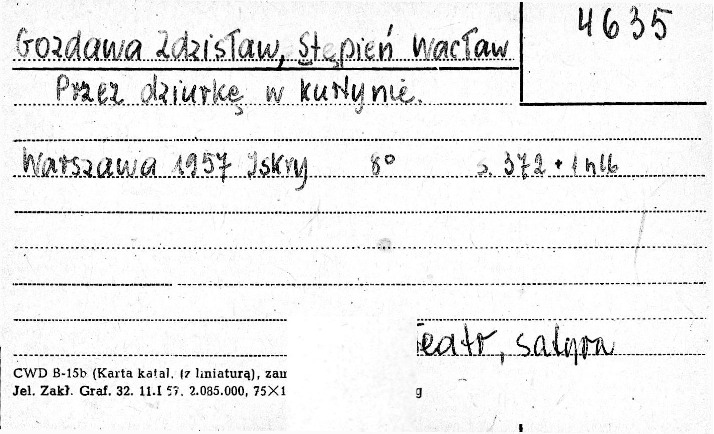 4635
Gozdawa Zdzisław, Stępień Wacław
Przez dziurkę w kurtynie.
Warszawa 1957 Iskry 8° s. 372 + 1 nlb
eatr, satyra
CWD B-15b (Karta katal. (z liniaturą), zam
Jel. Zakł. Graf. 32. 11.I 57. 2.085.000, 75×1 g